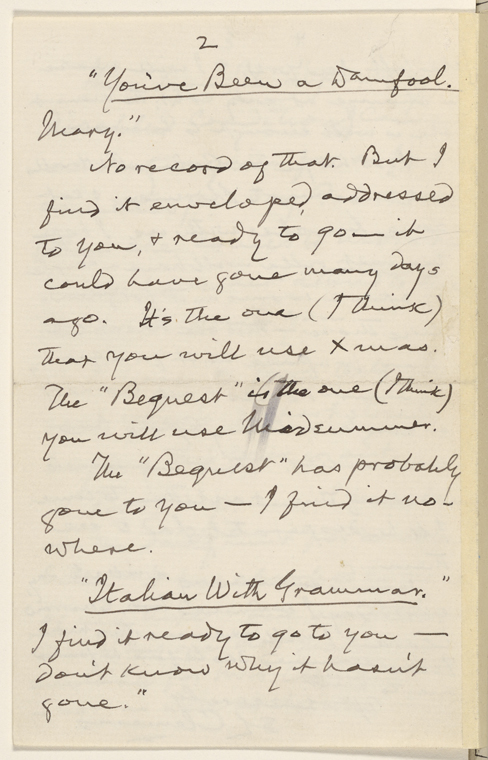 2
"You've Been a Damfool.
Mary."
No record of that. But I
find it enveloped, addressed
to you, & ready to go — it
could have gone many days
ago. It's the one (I think)
that you will use Xmas.
The "Bequest" is the one (I think)
you will use Midsummer.
The "Bequest" has probably
gone to you — I find it no-
where.
"Italian With Grammar."
I find it ready to go to you —
don't know why it hasn't
gone."